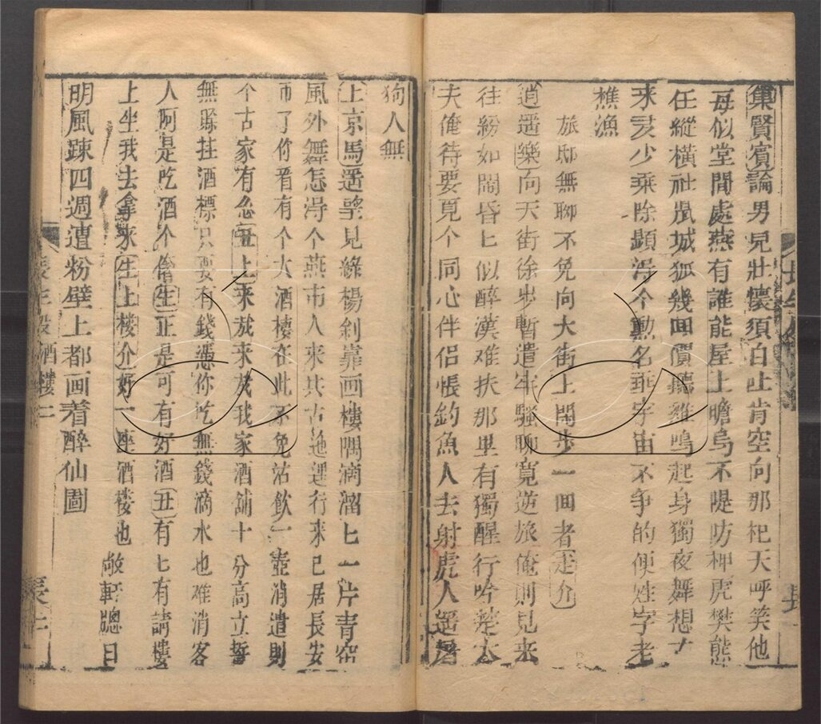 集賢賓論男兒壯懷須自吐肯空向那杞天呼笑他
每似堂間處燕有誰能屋上瞻烏不隄防柙虎樊熊
任縱橫社鼠城狐幾回價聽雞鳴起身獨夜舞想古
來多少乘除顯淂个勳名垂宇宙不爭的便姓字老
樵漁
旅邸無聊不免向大街上閒步一回者走介
逍遥樂向天街徐步暫遣牢騷聊寬逆旅俺則見來
往紛如鬧昏匕似醉漢难扶那里有獨醒行吟楚大
夫俺待要覓个同心伴侣悵釣魚人去射虎人遥屠
狗人無
上京馬遥望見綠楊斜靠画樓隅滴溜匕一片青帘
風外舞怎淂个燕市人来共沽迤邐行来已居長安
市了你看有个大酒樓在此不免沽飲一壺消遣則
个古家有么丑上来哉来哉我家酒舖十分高立誓
無賒挂酒標只要有錢憑你吃無錢滴水也难消客
人阿是吃酒个偺生正是可有好酒丑有匕有請樓
上坐我去拿来生上樓介好一座酒楼也敞軒牕日
明風踈四週遭粉壁上都画着醉仙圖
長生殿酒樓上